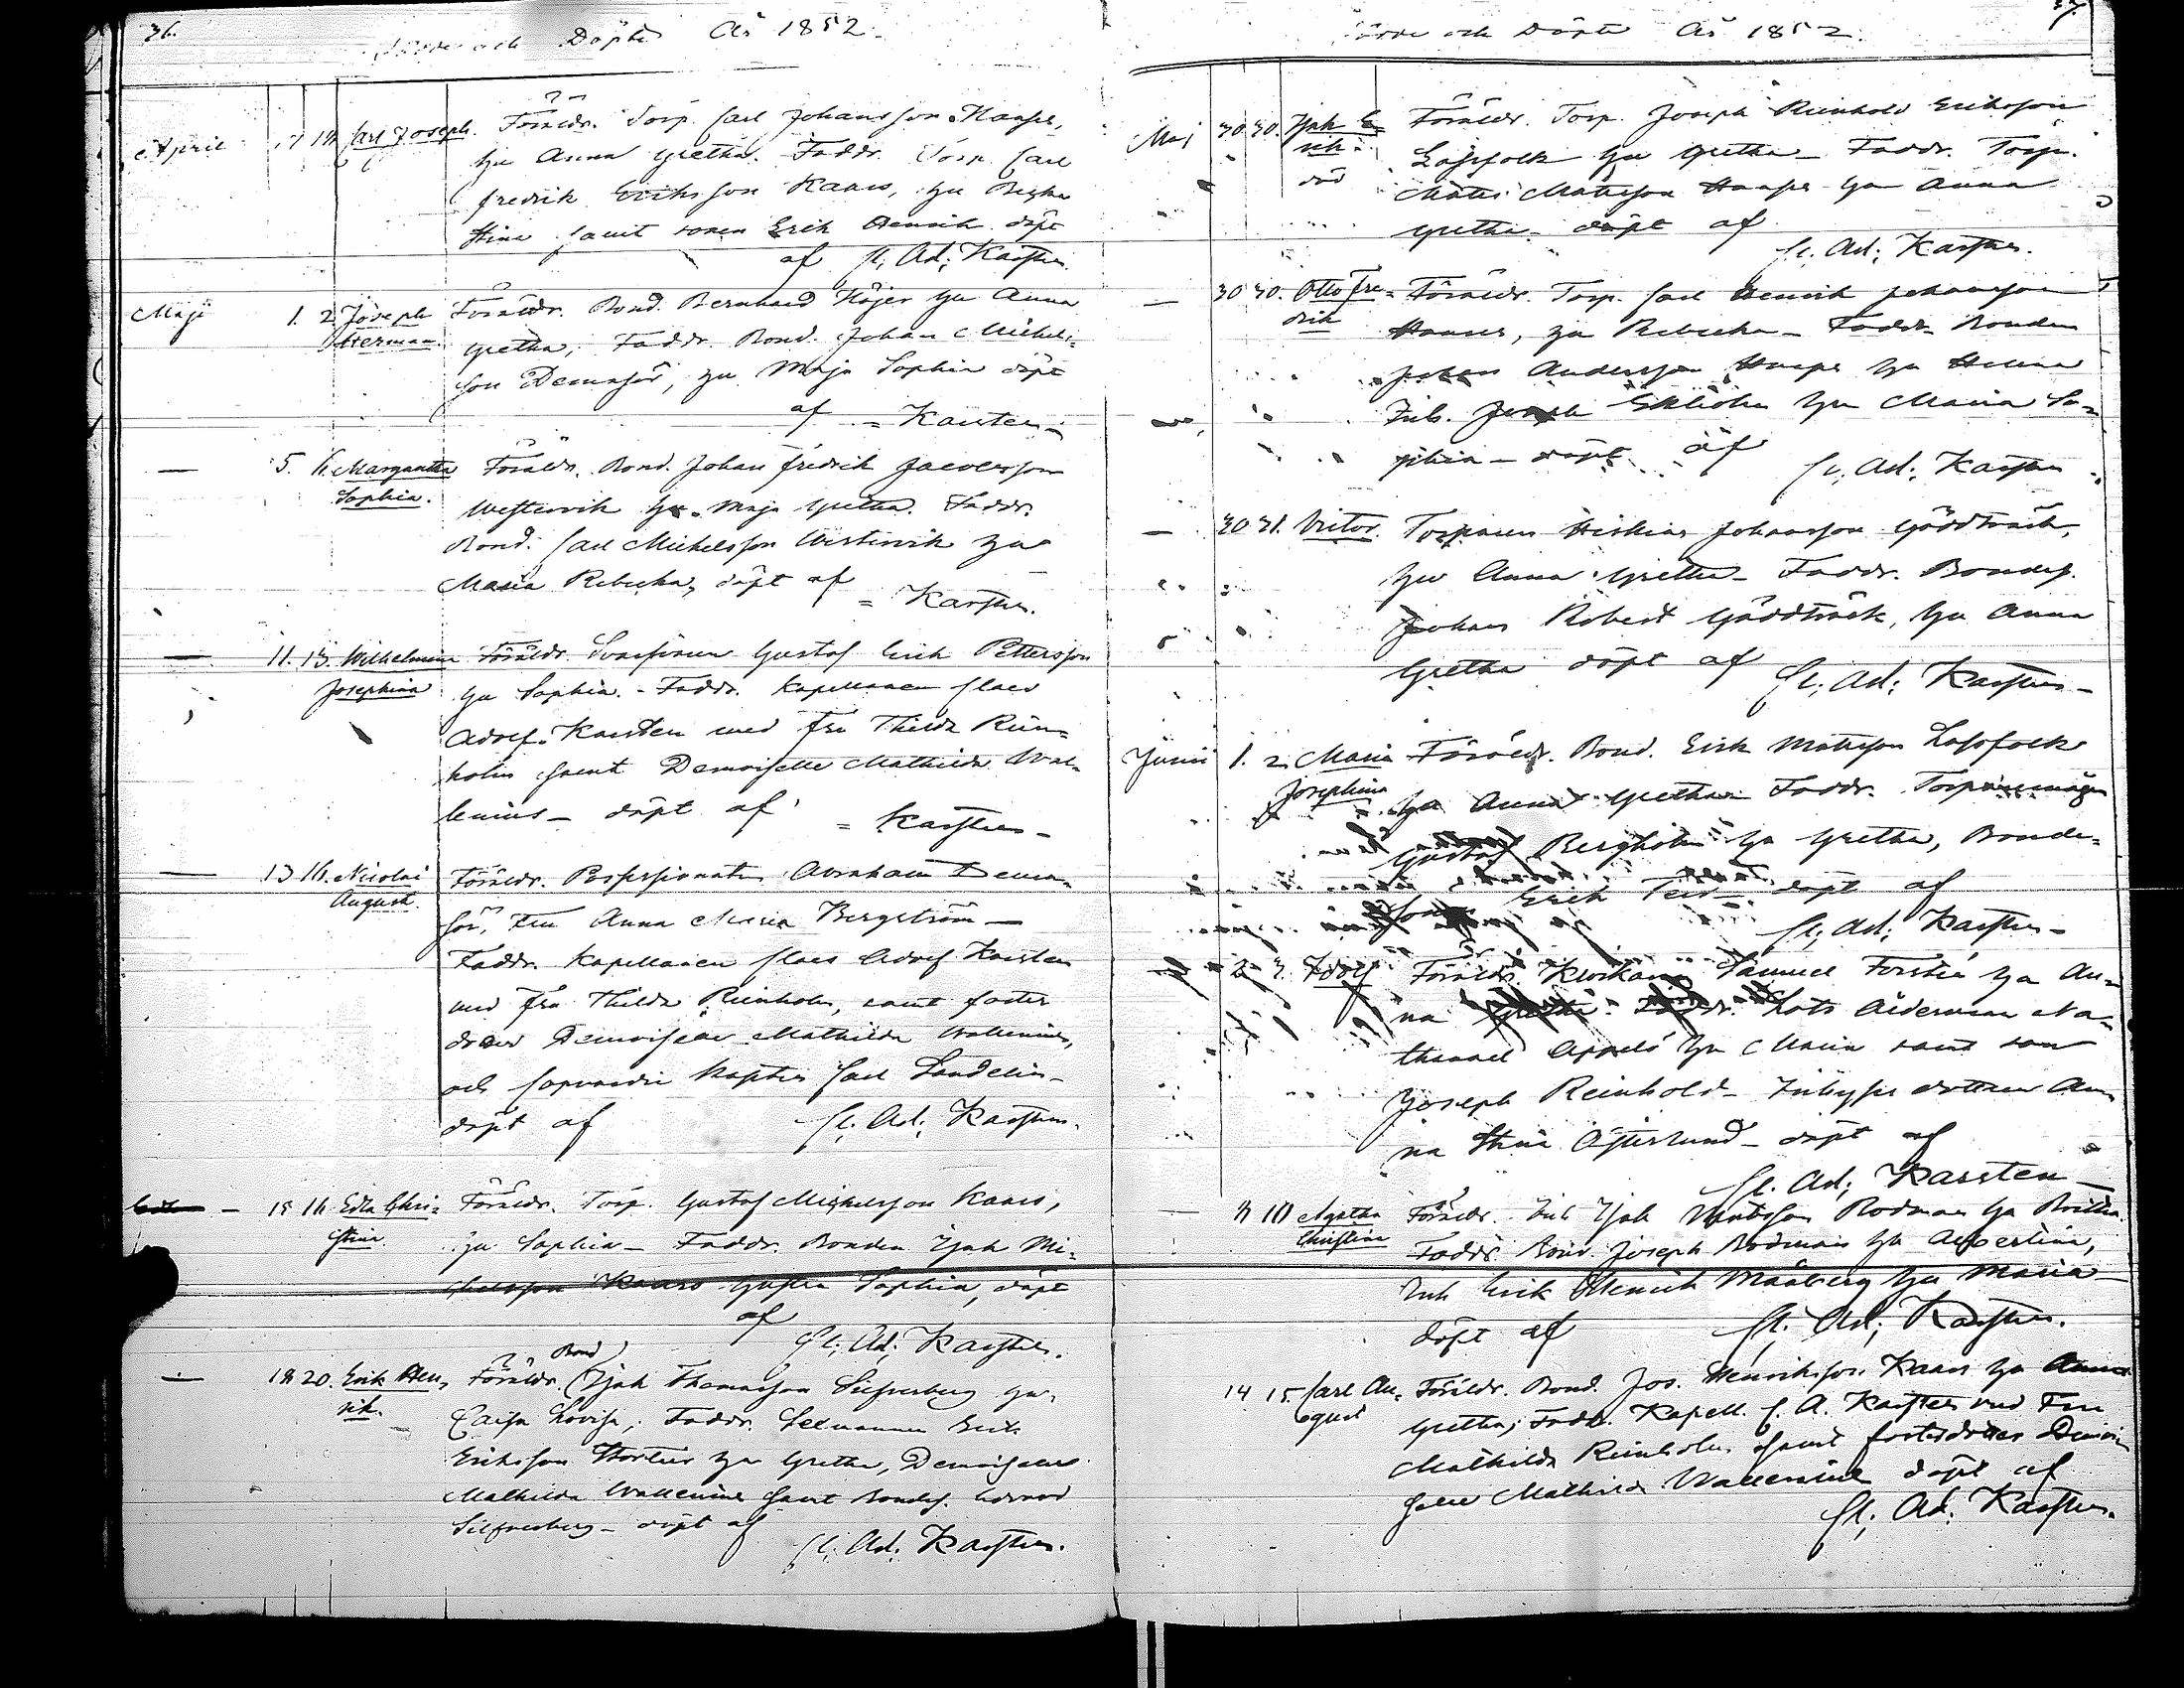 36.
Födde och Döpte År 1852.
April 17 18. Carl Joseph. Föräldr. Torp. Carl Johansson Haapes,
hu Anna Gretha. Faddr. Torp. Carl
fredrik Eriksson Kaars, hu Brigha
Stina samt sonen Erik Henrik döpt
af Cl. Ad; Karsten.
Maji 1. 2. Joseph Föräldr. Bond. Bernhard Höjer hu Anna
Herman. Gretha, Faddr. Bond. Johan Michels=
son Demasör, hu Maja Sophia döpt
af = Karsten
— 5. 6. Margaretha Föräldr. Bond. Johan fredrik Jacobsson
Sophia. Westervik hu Maja Gretha. Faddr.
Bond. Carl Michelsson Westervik hu
Maria Rebecka, döpt af
= Karsten.
— 11. 13. Wilhelmina Föräldr. Gustaf Erik Pettersson
Josephina hu Sophia. Faddr. Kapellanen Claes
Adolf Karsten med fru Thilda Rein=
holm samt Demoiselle Mathilda Wal=
lenius — döpt af
= Karsten —
— 13 16. Nicolai Föräldr. Possessionaten Abraham Dema=
August. sör, fru Anna Maria Bergström —
Faddr. Kapellanen Claes Adolf Karsten
med fru Thilda Reinholm, samt foster
dotter Demoiselle Mathilda Wallenius,
och Kapten Carl Sandelin —
döpt af Cl. Ad; Karsten.
— 15 16. Edla Chri= Föräldr. Torp. Gustaf Michelsson Kaars,
stina. hu Sophia — Faddr. Bonden Isak Mi=
chelsson Kaars hustru Sophia, döpt
af
Cl; Ad; Karsten.
Bond
— 18 20. Erik Hen= Föräldr. Isak Thomasson Silfverberg hu
rik. Caisa Lovisa; Faddr. Erik
Eriksson hu Gretha, Demoiselle
Mathilda Wallenius samt Bondes. Edvard
Silfverberg — döpt af
Cl; Ad; Karsten.
37.
Födde och Döpte År 1852.
Maj 30. 30. Isak E= Föräldr. Torp. Joseph Reinhold Eriksson
rik. Lassfolk hu Gretha — Faddr. Torp.
död Matts Mattsson Haapes hu Anna
Gretha — döpt af
Cl. Ad; Karsten.
— 30 30. Otto Fre= Föräldr. Torp. Carl Henrik Johansson
drik hu Rebecka — Faddr. Bonden
Johan Andersson Haapes hu Helena
Inh. Joseph Ekholm hu Maria So=
phia — döpt af
Cl, Ad; Karsten
— 30 31. Victor. Torparen Hiskias Johansson Gäddträsk,
hu Anna Gretha — Faddr. Bondes.
Johan Robert Gäddträsk, hu Anna
Gretha döpt af
Cl; Ad; Karsten —
Junii 1. 2. Maria Föräldr. Bond. Erik Mattsson Lassfolk
Josephina hu Anna Gretha — Faddr. Torparemåg
Gustaf Bergholm hu Gretha, Bonde=
sonen Erik döpt af
Cl; Ad; Karsten —
— 2 3. Adolf Föräldr. Samuel Forstén hu An=
na Gretha. Faddr. Lots Ålderman Na=
thanael Appelö hu Maria samt son
Joseph Reinhold — dottren An=
na Stina Österlund — döpt af
Cl. Ad; Karsten —
— 8 10 Agatha Föräldr. Inh Isak Mattsson Rodman hu Britha.
Christina Faddr. Bond. Joseph Rodman hu Albertina,
Inh Erik Henrik Måsberg hu Maria —
döpt af Cl. Ad; Karsten.
14 15. Carl Au= Föräldr. Bond. Jos. Henriksson Kaars hu Anna
gust Gretha; Faddr. Kapell. C. A. Karsten med Fru
Mathilda Reinholm samt fosterdotter Demoi
selle Mathilda Wallenius döpt af
Cl; Ad; Karsten.